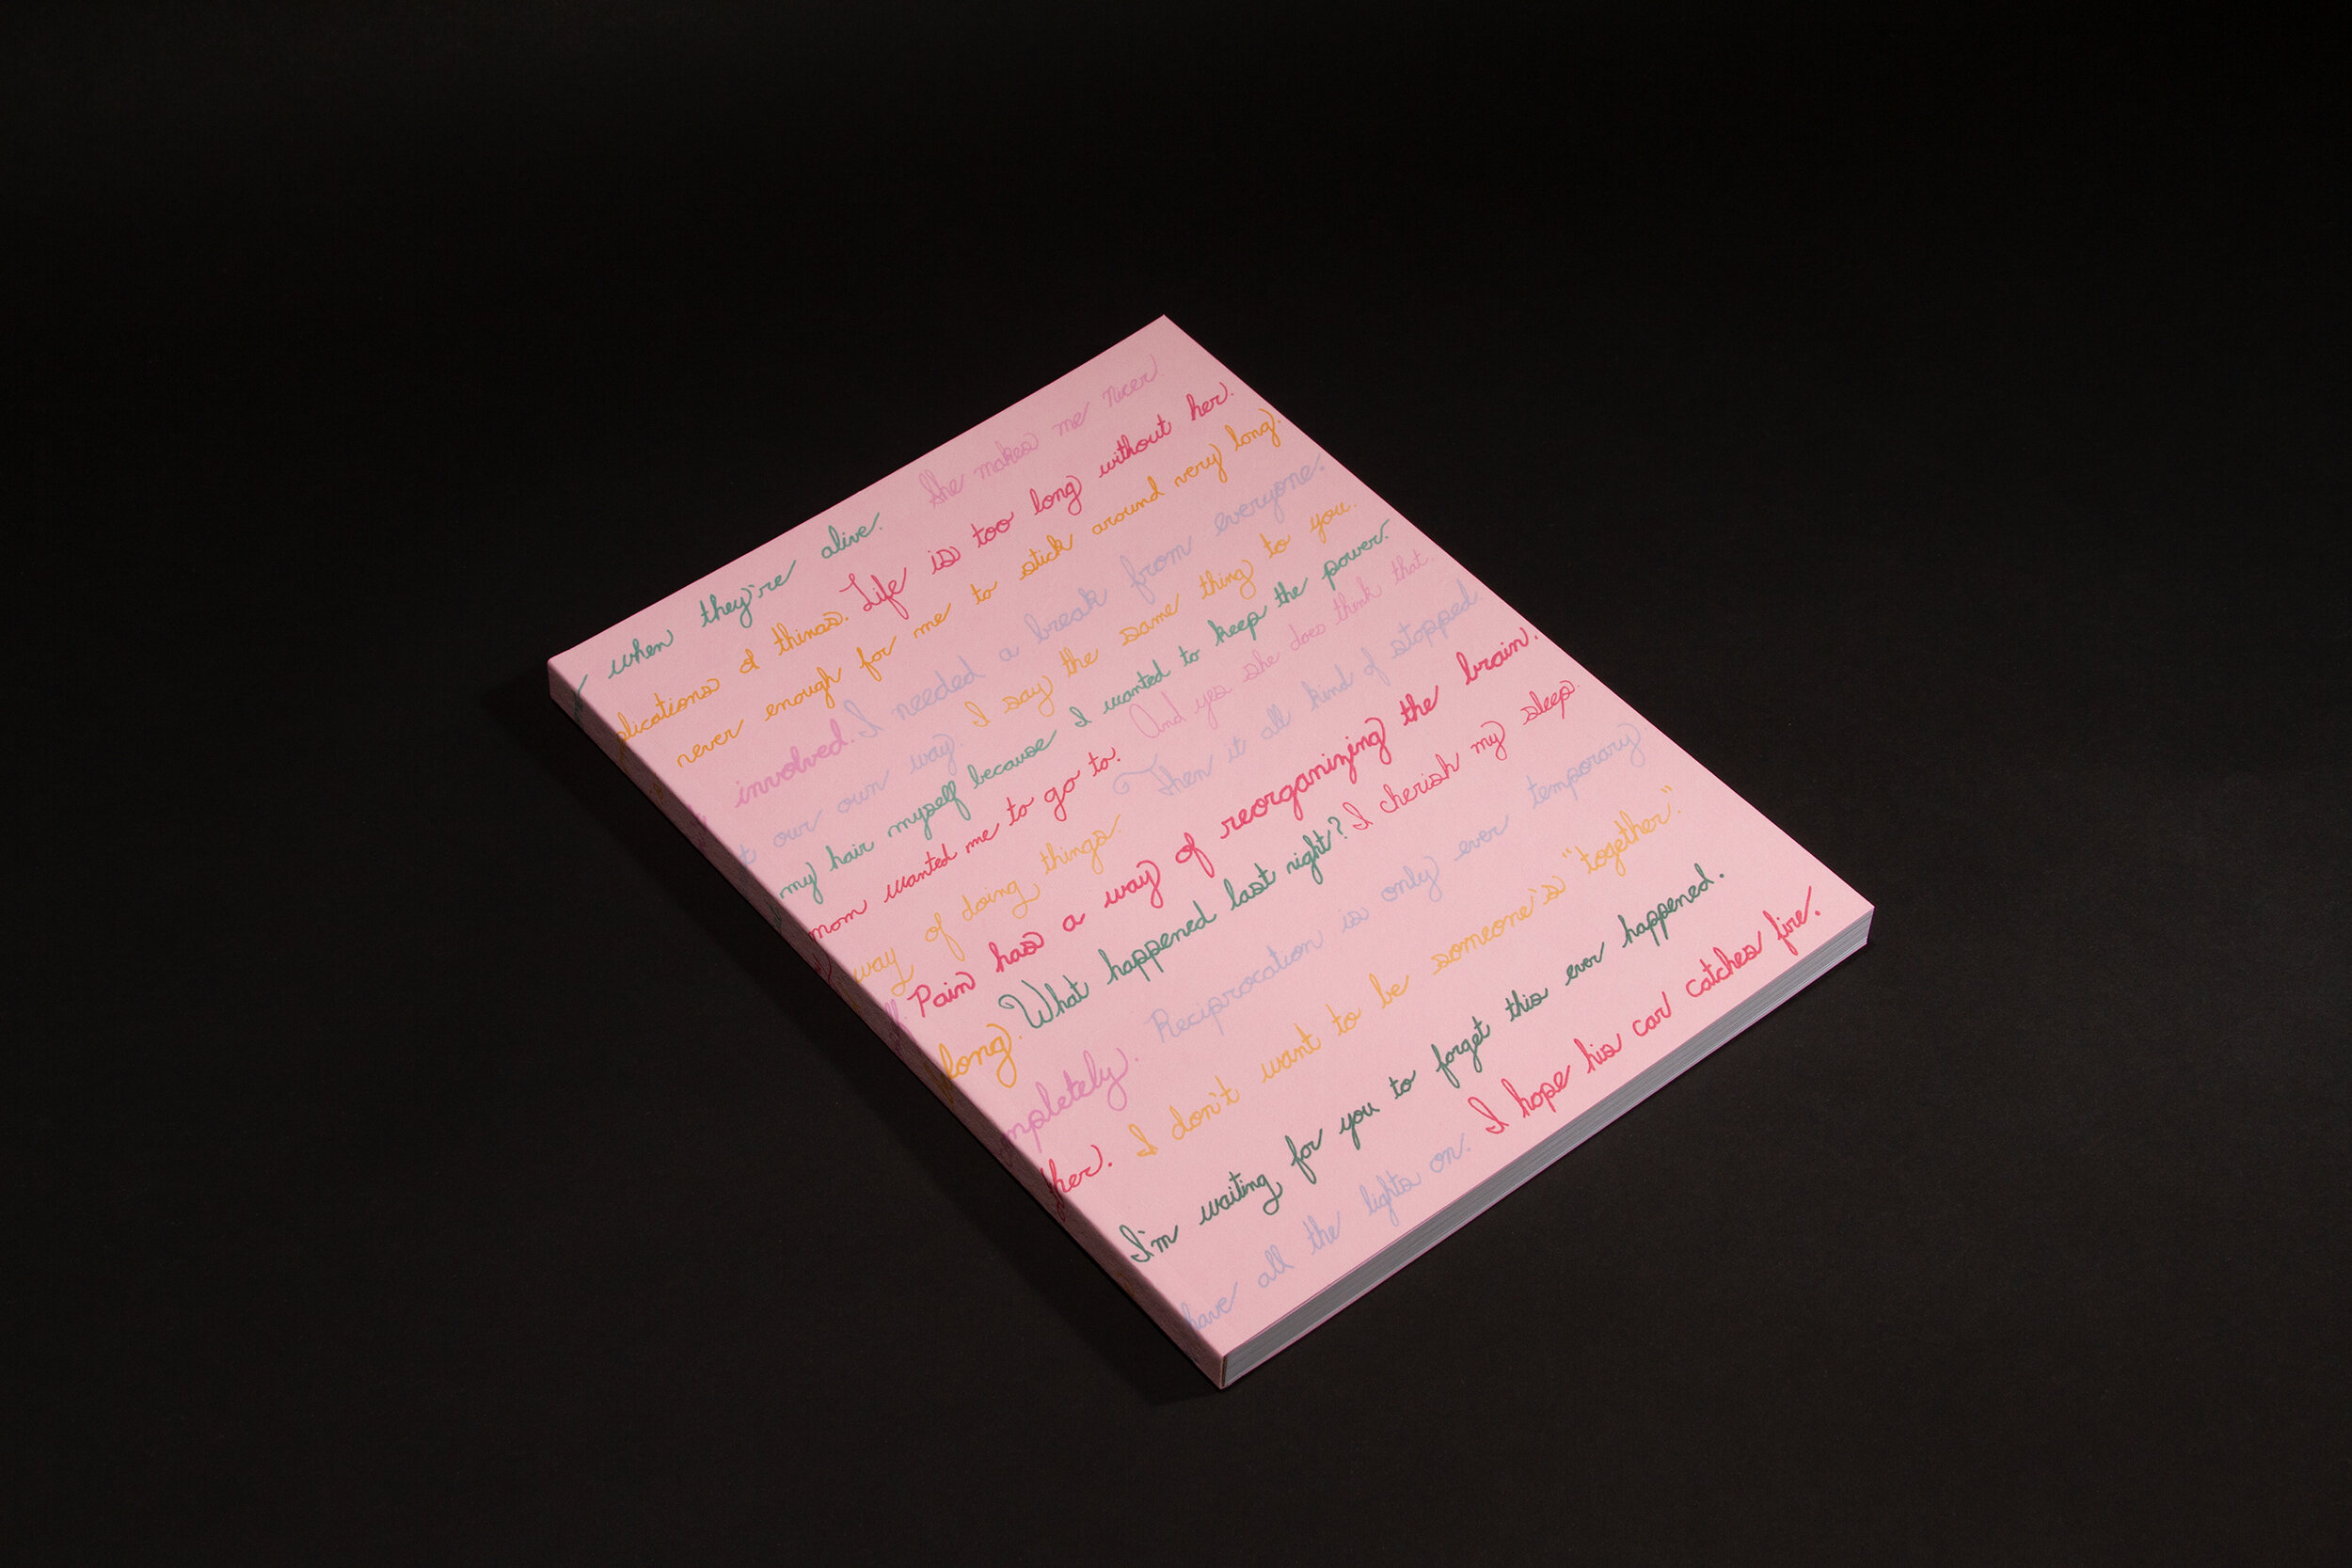 when they're alive. She makes me nicer.
plications of things. Life is too long without her.
never enough for me to stick around very long.
involved. I needed a break from everyone.
our own way I say the same thing to you.
my hair myself because I wanted to keep the power.
mom wanted me to go to. And yes she does think that.
way of doing things. Then it all kind of stopped
Pain has a way of reorganizing the brain.
long. What happened last night? I cherish my sleep.
mpletely. Reciprocation is only ever temporary
her). I don't want to be someone's "together."
I'm waiting for you to forget this ever happened.
have all the lights on. I hope his car catches fire.